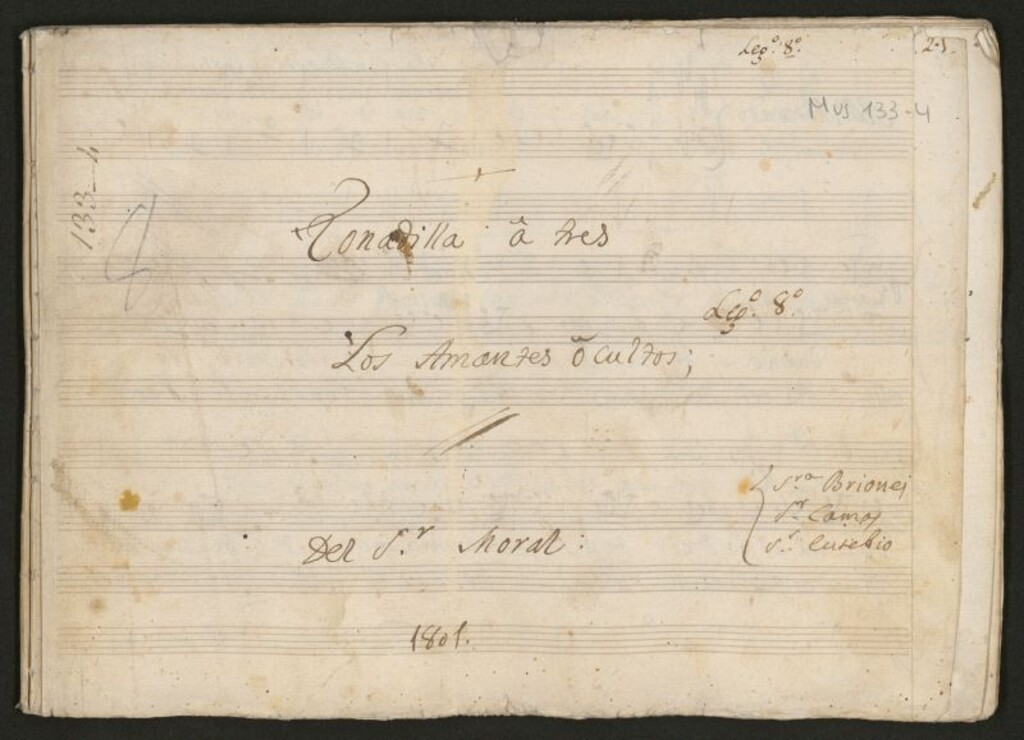 Legº. 8º.
2-1.
Mus 133-4
133-4
Tonadilla â tres
Legº. 8º.
Los Amantes ôcultos;
Srª Briones
Sr. Camas
Sr. Eusebio
Del Sr. Moral:
1801.